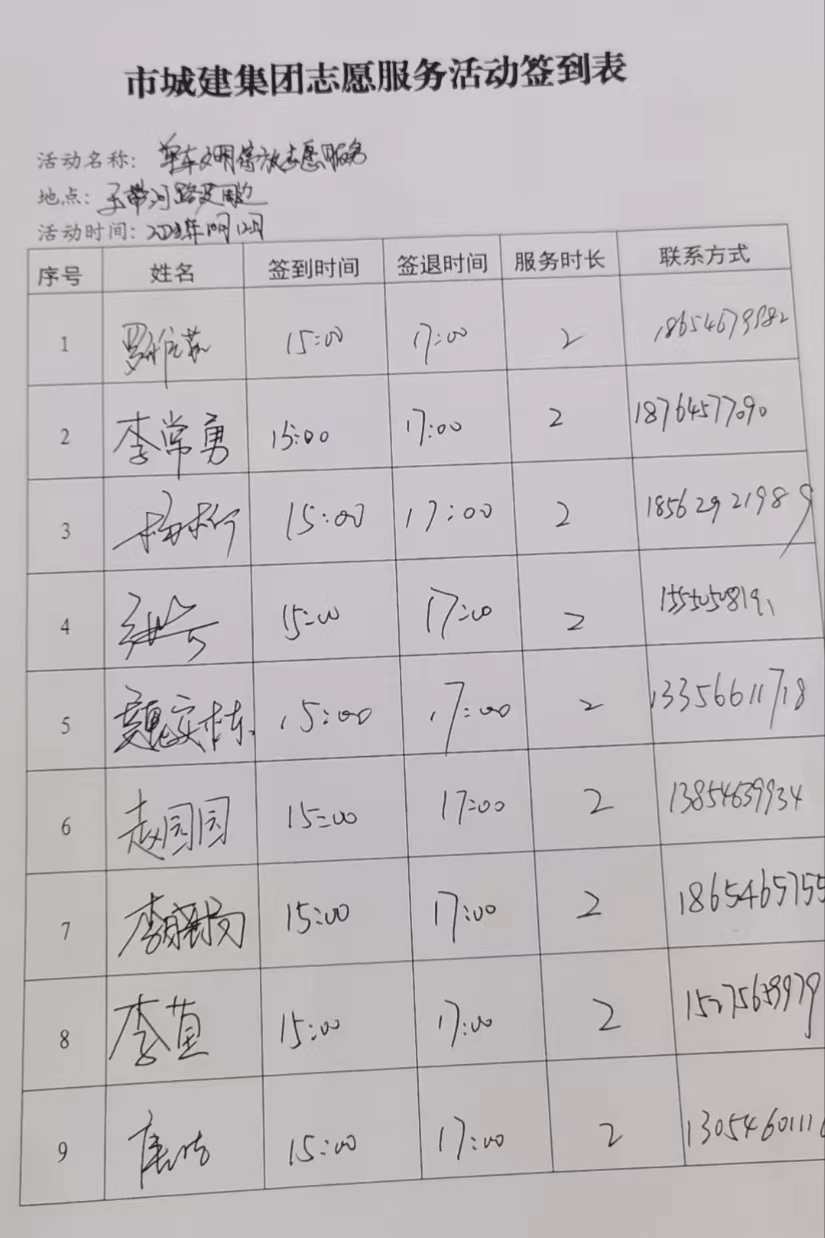 市城建集团志愿服务活动签到表
活动名称：单车文明停放志愿服务
地点：玉带河路及周边
活动时间：2023年10月12日
序号 姓名 签到时间 签退时间 服务时长 联系方式
1 15:00 17:00 2
2 李常勇 15:00 17:00 2 18764577090
3 15:00 17:00 2 18562921989
4 15:00 17:00 2
5 魏实栋 15:00 17:00 2 13356611718
6 赵园园 15:00 17:00 2 13854639934
7 李 15:00 17:00 2 1865465755
8 李苗 15:00 17:00 2 15275639979
9 15:00 17:00 2 1305460111